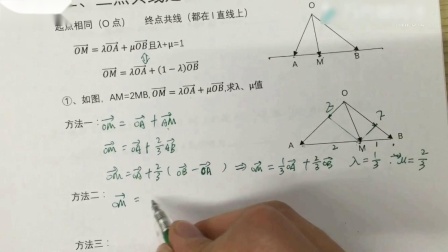 二、三点共线定
起点相同（O 点） 终点共线（都在 l 直线上）
O
A M B
OM = λOA + μOB且λ+μ=1
OM = λOA + (1 - λ)OB
①、如图，AM=2MB, OM = λOA + μOB,求λ、μ值
O
A M B
2 1
方法一: OM = OA + AM
OM = OA + 2/3 AB
OM = OA + 2/3 ( OB - OA ) ⇒ OM = 1/3 OA + 2/3 OB λ = 1/3 ∴ μ = 2/3
方法二: OM =
方法三: